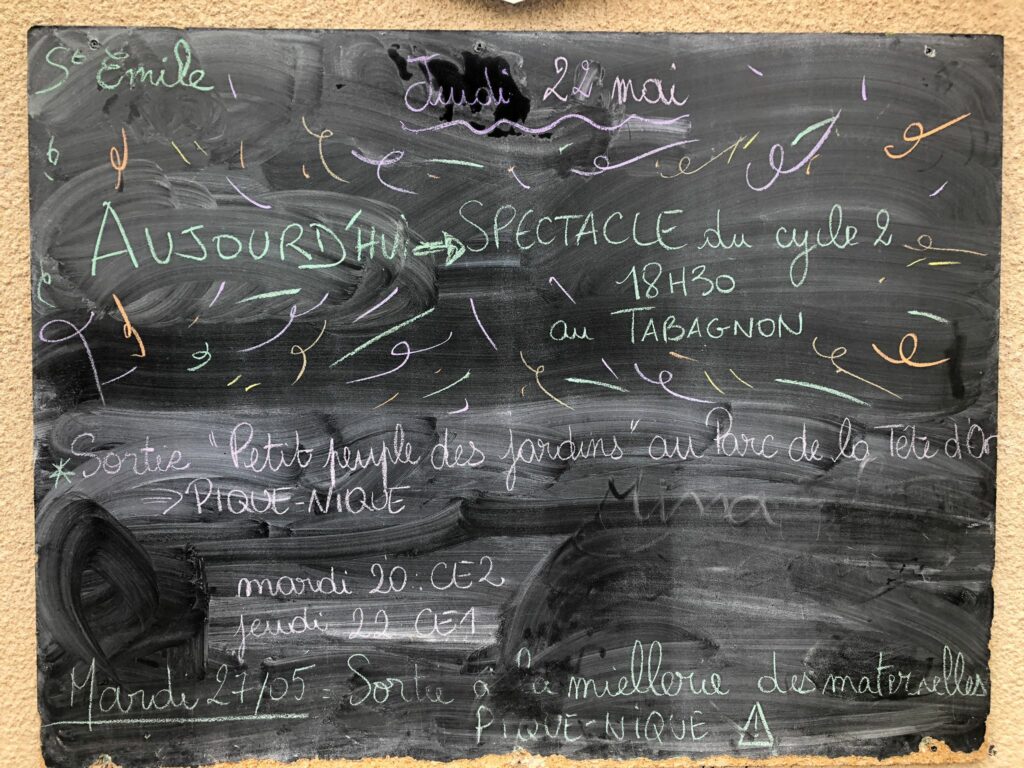 St Émile
Jeudi 22 mai
AUJOURD'HUI → SPECTACLE du cycle 2
18H30
au TABAGNON
* Sortie "Petit peuple des jardins" au Parc de la Tête d'Or
→ PIQUE-NIQUE
Mina
mardi 20 : CE2
jeudi 22 CE1
Mardi 27/05 = Sortie à la miellerie des maternelles
PIQUE-NIQUE ⚠